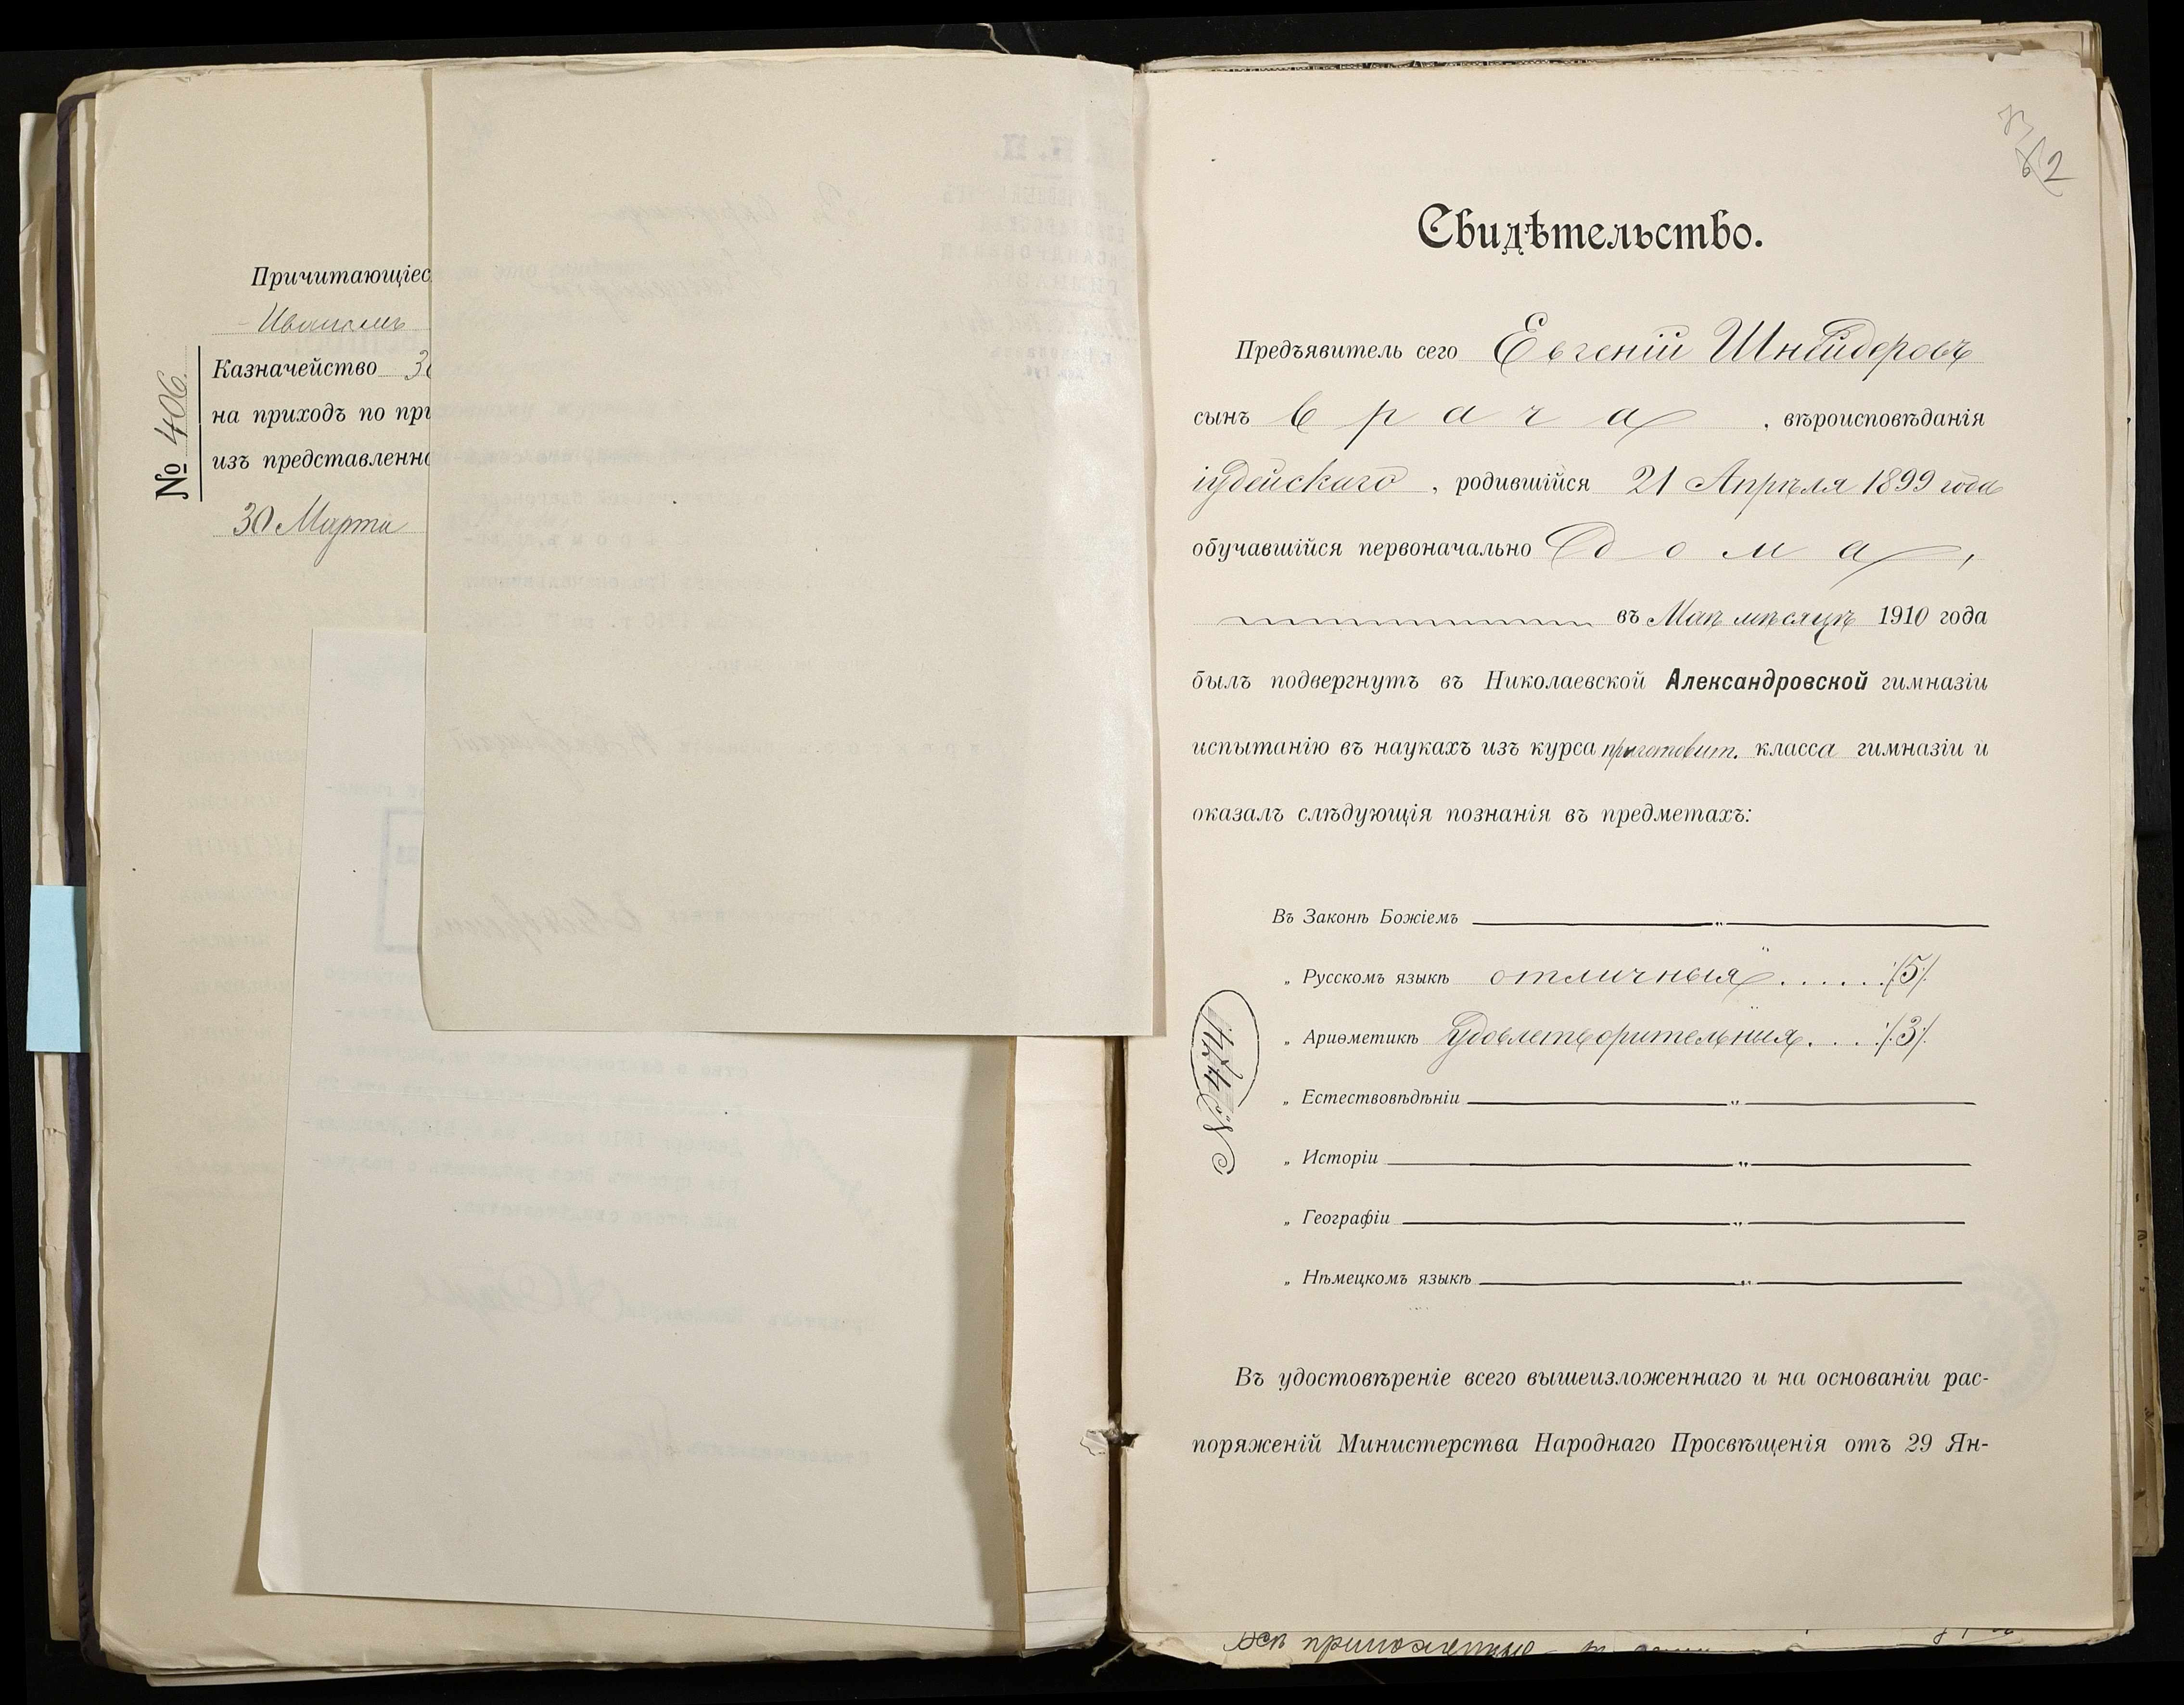 Причитающіес
Иваномъ
Казначейство 3
на приходъ по при
изъ представленно
№ 406.
30 Марта
82
Свидѣтельство.
Предъявитель сего Евгеній Шнейдеровъ
сынъ врача, вѣроисповѣданія
іудейскаго, родившійся 21 Апрѣля 1899 года
обучавшійся первоначально дома,
въ Маѣ мѣсяцѣ 1910 года
былъ подвергнутъ въ Николаевской Александровской гимназіи
испытанію въ наукахъ изъ курса приготовит. класса гимназіи и
оказалъ слѣдующія познанія въ предметахъ:
Въ Законѣ Божіемъ „
„ Русскомъ языкѣ отличныя . . . . . . /5/.
„ Ариѳметикѣ Удовлетворительныя. . . . /3/.
„ Естествовѣдѣніи „
„ Исторіи „
„ Географіи „
„ Нѣмецкомъ языкѣ „
№ 474
Въ удостовѣреніе всего вышеизложеннаго и на основаніи рас-
поряженій Министерства Народнаго Просвѣщенія отъ 29 Ян-